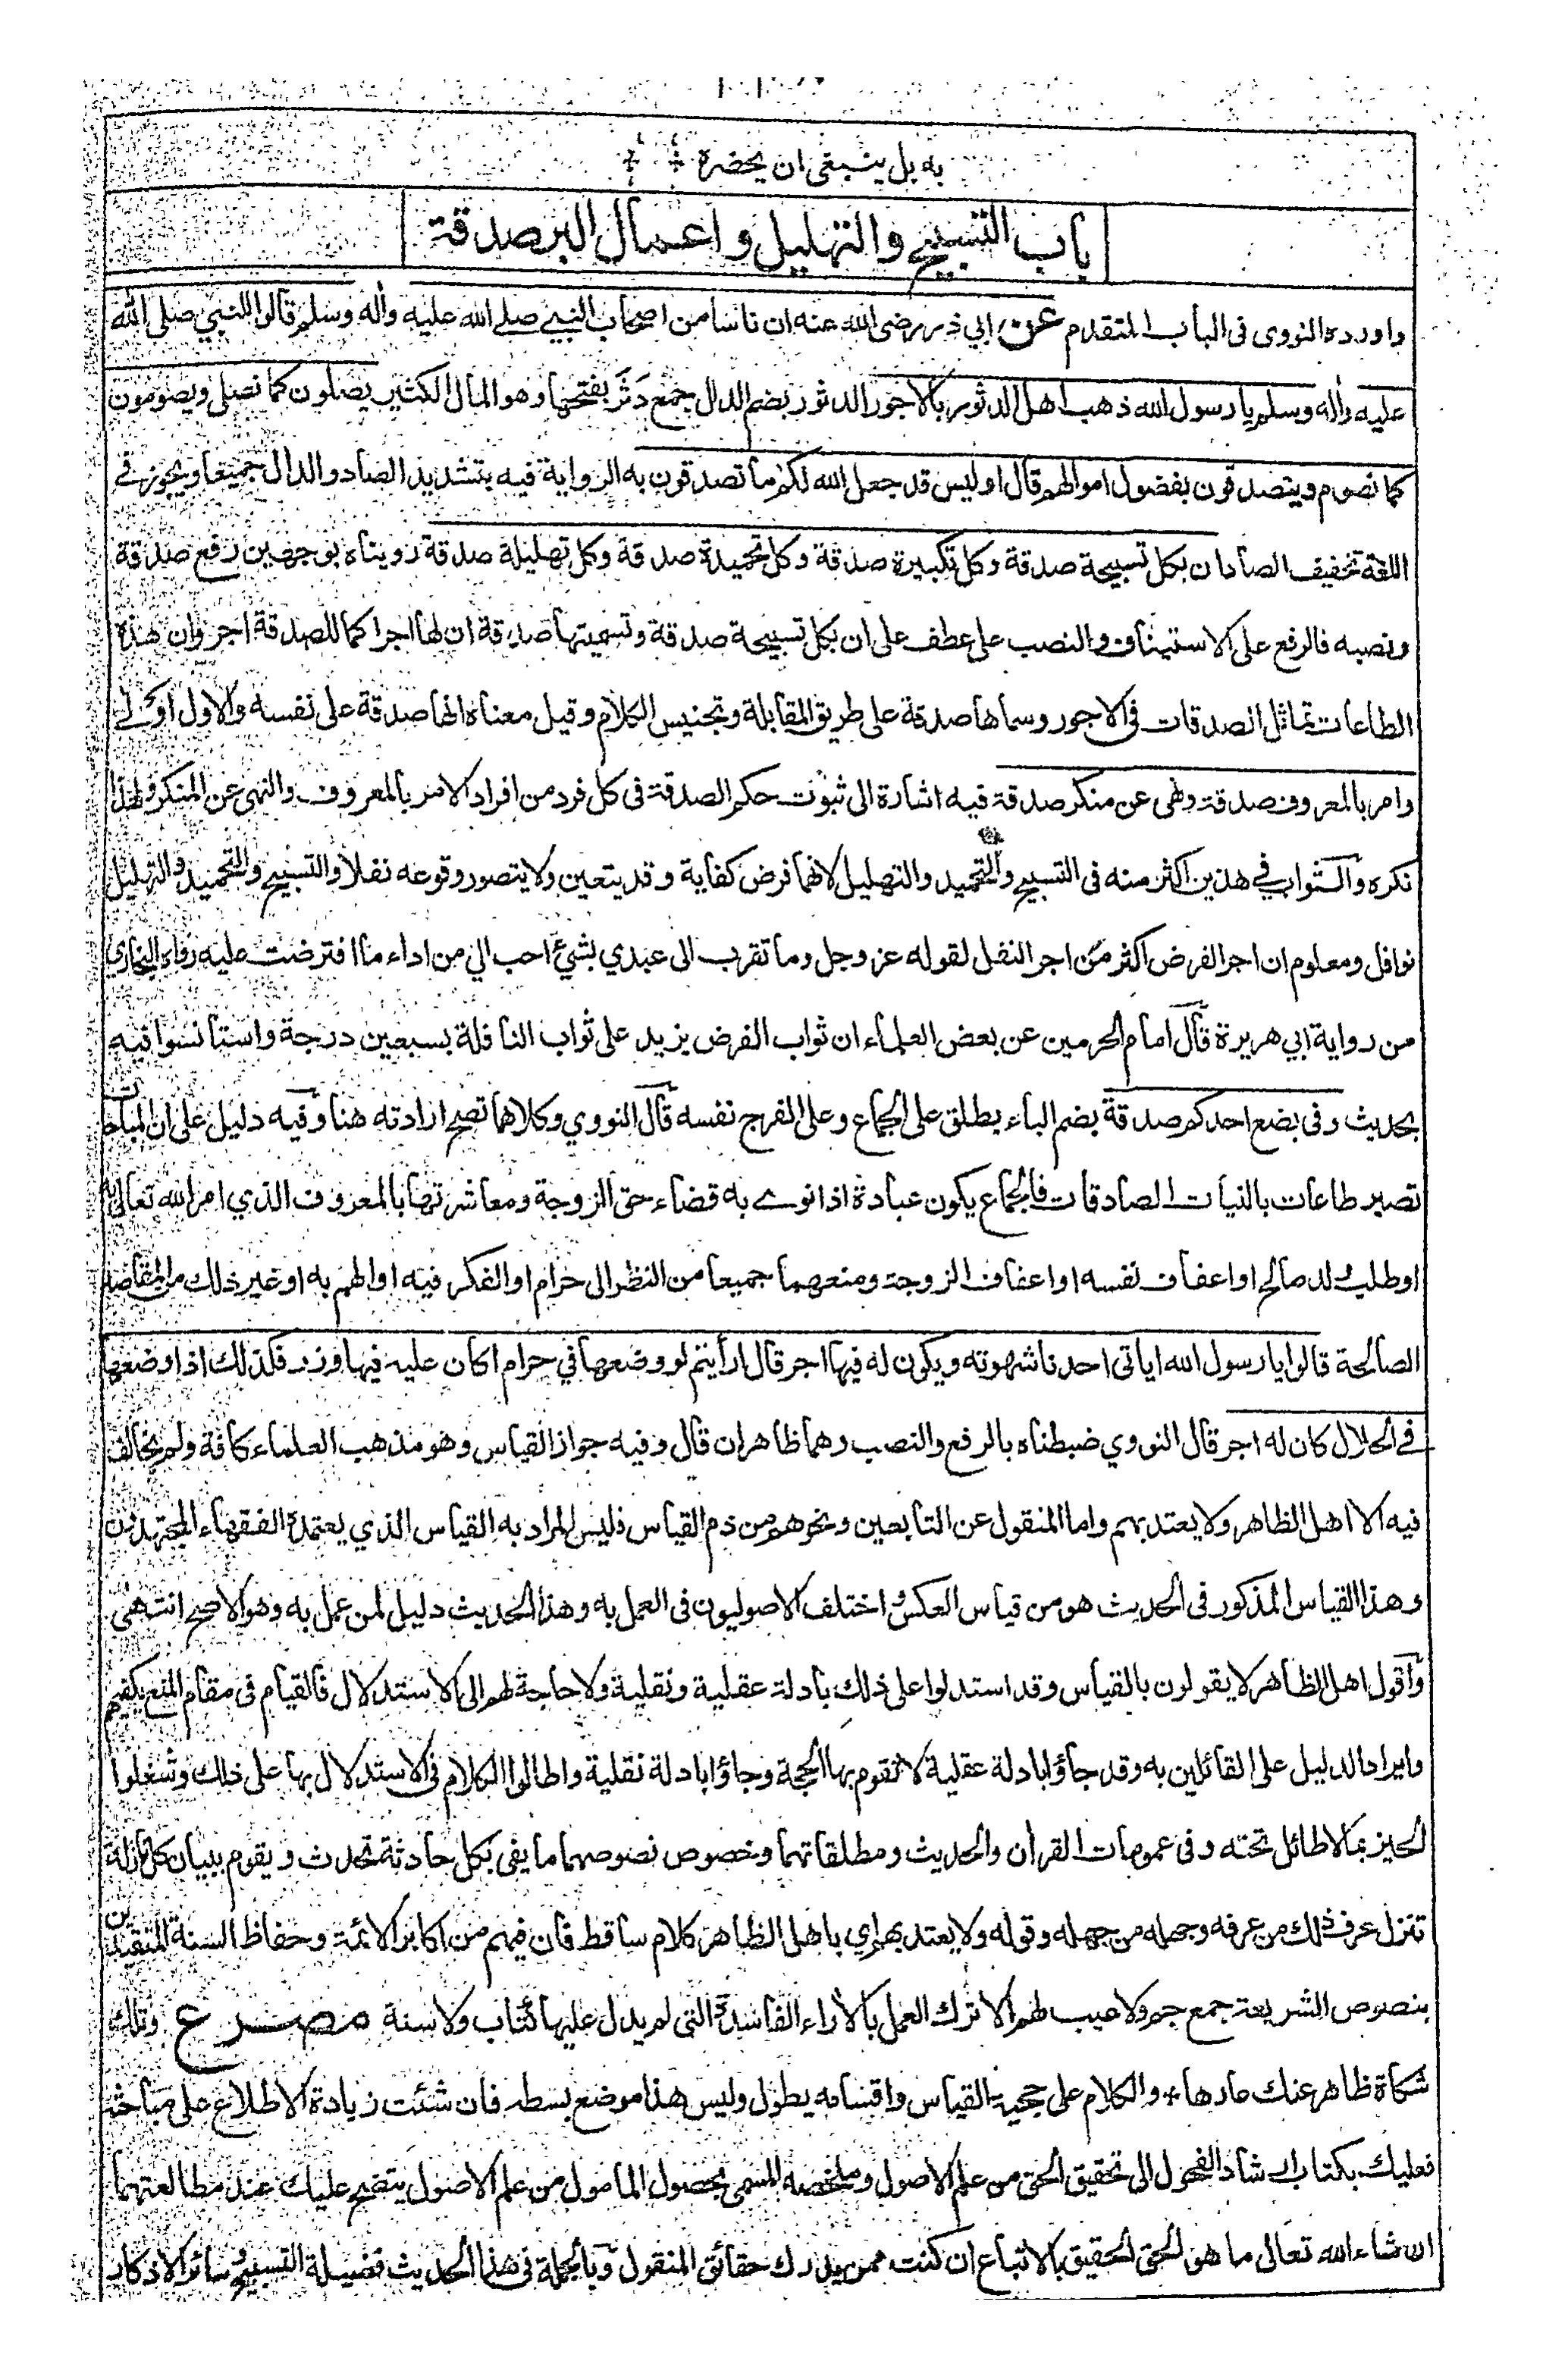 به بل ينبغى ان يحضره
باب التسبيح والتهليل واعمال البر صدقة
واورده النووى فى الباب المتقدم عن ابي ذر رضى الله عنه ان ناسا من اصحاب النبي صلے الله عليه واٰله وسلم قالوا للنبي صلى الله
عليه واٰله وسلم يا رسول الله ذهب اهل الدثور بالاجور الدثور بضم الدال جمع دَثْر بفتحها وهو المال الكثير يصلون كما نصلى ويصومون
كما نصوم ويتصدقون بفضول اموالهم قال اوليس قد جعل الله لكم ما تصدقون به الرواية فيه بتشديد الصاد والدال جميعا ويجوز فى
اللغة تخفيف الصاد ان بكل تسبيحة صدقة وكل تكبيرة صدقة وكل تحميدة صدقة وكل تهليلة صدقة رويناه بوجهين رفع صدقة
ونصبه فالرفع على الاستيناف والنصب على عطف على ان بكل تسبيحة صدقة وتسميتها صدقة ان لها اجرا كما للصدقة اجر وان هذه
الطاعات تماثل الصدقات فى الاجور وسماها صدقة على طريق المقابلة وتجنيس الكلام وقيل معناه انها صدقة على نفسه والاول اولے
وامر بالمعروف صدقة ونهى عن منكر صدقة فيه اشارة الى ثبوت حكم الصدقة فى كل فرد من افراد الامر بالمعروف والنهى عن المنكر ولهذا
نكره والثواب في هذين اكثر منه فى التسبيح والتحميد والتهليل لانهما فرض كفاية وقد يتعين ولا يتصور وقوعه نفلا والتسبيح والتحميد والتهليل
نوافل ومعلوم ان اجر الفرض اكثر من اجر النفل لقوله عز وجل وما تقرب الى عبدي بشئ احب الي من اداء ما افترضت عليه رواه البخاري
من رواية ابي هريرة قال امام الحرمين عن بعض العلماء ان ثواب الفرض يزيد على ثواب النافلة بسبعين درجة واستانسوا فيه
بحديث وفى بضع احدكم صدقة بضم الباء يطلق على الجماع وعلى الفرج نفسه قال النووي وكلاهما تصح ارادته هنا وفيه دليل على ان المباحات
تصير طاعات بالنيات الصادقات فالجماع يكون عبادة اذا نوے به قضاء حق الزوجة ومعاشرتها بالمعروف الذي امر الله تعالى به
او طلب ولد صالح او اعفاف نفسه او اعفاف الزوجة ومنعهما جميعا من النظر الى حرام او الفكر فيه او الهم به او غير ذلك من المقاصد
الصالحة قالوا يا رسول الله اياتى احدنا شهوته ويكون له فيها اجر قال ارأيتم لو وضعها في حرام اكان عليه فيها وزر فكذلك اذا وضعها
فے الحلال كان له اجر قال النووي ضبطناه بالرفع والنصب وهما ظاهران قال وفيه جواز القياس وهو مذهب العلماء كافة ولم يخالف
فيه الا اهل الظاهر ولا يعتد بهم واما المنقول عن التابعين ونحوهم من ذم القياس فليس المراد به القياس الذي يعتمده الفقهاء المجتهدون
وهذا القياس المذكور فى الحديث هو من قياس العكس واختلف الاصوليون فى العمل به وهذا الحديث دليل لمن عمل به وهو الاصح انتهى
واقول اهل الظاهر لا يقولون بالقياس وقد استدلوا على ذلك بادلة عقلية ونقلية ولا حاجة لهم الى الاستدلال فالقيام فى مقام المنع يكفيهم
وايراد الدليل على القائلين به وقد جاؤا بادلة عقلية لا تقوم بها الحجة وجاؤا بادلة نقلية واطالوا الكلام فى الاستدلال بها على ذلك وشغلوا
الحيز بما لا طائل تحته وفى عمومات القران والحديث ومطلقاتهما وخصوص نصوصهما ما يفى بكل حادثة تحدث ويقوم ببيان كل نازلة
تنزل عرف ذلك من عرفه وجهله من جهله وقوله ولا يعتد بهم اي باهل الظاهر كلام ساقط فان فيهم من اكابر الائمة وحفاظ السنة المتقيدين
بنصوص الشريعة جمع جم ولا عيب لهم الا ترك العمل بالاراء الفاسدة التى لم يدل عليها كتاب ولا سنة مصرع وتلك
شكاة ظاهر عنك عارها + والكلام على حجية القياس واقسامه يطول وليس هذا موضع بسطه فان شئت زيادة الاطلاع على مباحثه
فعليك بكتاب ارشاد الفحول الى تحقيق الحق من علم الاصول وملخصه المسمى بحصول المامول من علم الاصول يتضح عليك عند مطالعتهما
ان شاء الله تعالى ما هو الحق الحقيق بالاتباع ان كنت ممن يدرك حقائق المنقول وبالجملة فى هذا الحديث فضيلة التسبيح وسائر الاذكار